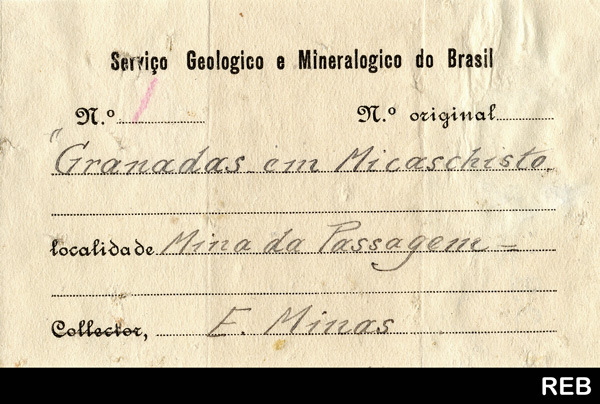 Serviço Geologico e Mineralogico do Brasil
N.º N.º original
"Granadas em Micaschisto.
localidade Mina da Passagem –
Collector, E. Minas
REB